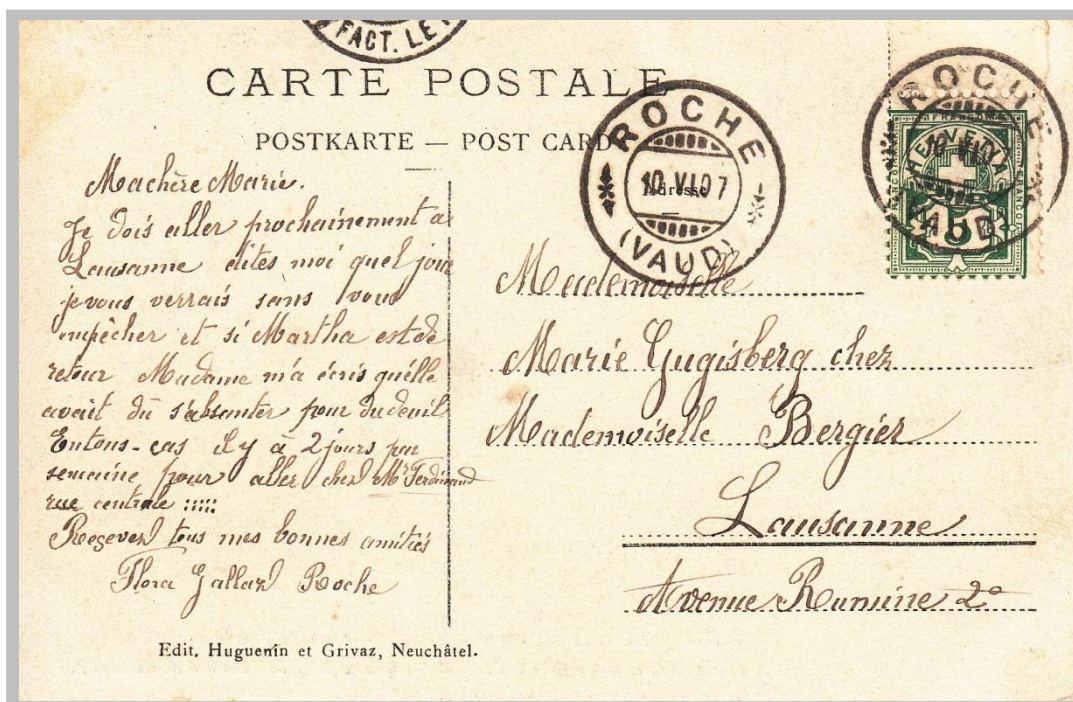 FACT. LE
CARTE POSTALE
POSTKARTE — POST CARD
ROCHE
10 VI 07
(VAUD)
Adresse
ROCHE
VAUD
FRANCO
5
Ma chère Marie.
Je dois aller prochainement a
Lausanne dites moi quel jour
je vous verrais sans vous
empêcher et si Martha est de
retour Madame m'a écris quélle
avait dû s'absanter pour du deuil
Entous-cas il y à 2 jours par
semaine pour aller chez Mr Ferdinand
rue centrale :::::
Reçevez tous mes bonnes amitiés
Flora Jallaz Roche
Mademoiselle
Marie Gugisberg chez
Mademoiselle Bergier
Lausanne
Avenue Rumine 2
Edit. Huguenin et Grivaz, Neuchâtel.